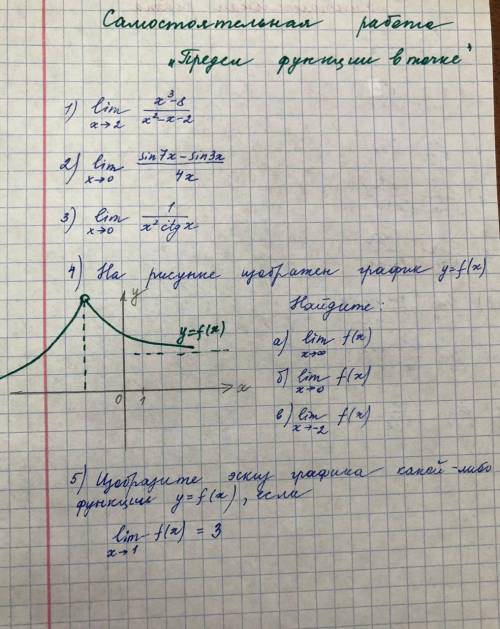 Самостоятельная работа
„Предел функции в точке"
1) lim x→2 (x³-8)/(x²-x-2)
2) lim x→0 (sin7x-sin3x)/4x
3) lim x→0 1/(x² ctgx)
4) На рисунке изображен график y=f(x)
y
Найдите:
y=f(x)
а) lim x→∞ f(x)
б) lim x→0 f(x)
0 1 x
в) lim x→-2 f(x)
5) Изобразите эскиз графика какой-либо
функции y=f(x), если
lim x→1 f(x) = 3